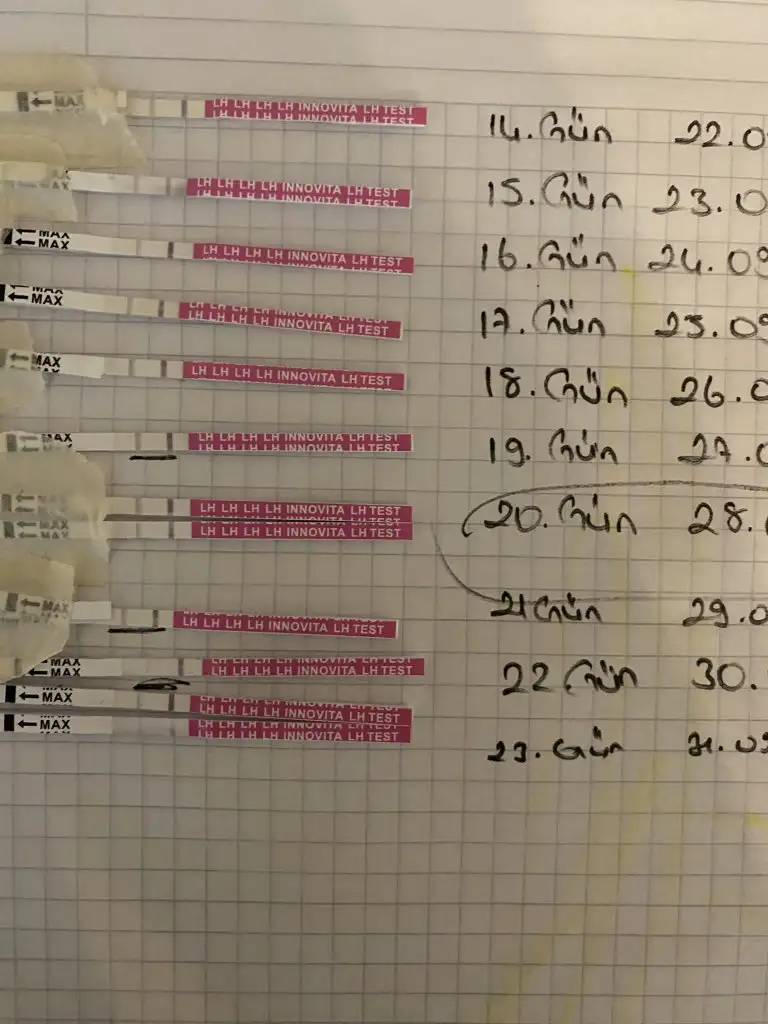 MAX LH LH LH LH INNOVITA LH TEST 14. Gün 22.0
LH LH LH LH INNOVITA LH TEST 15. Gün 23.0
MAX LH LH LH LH INNOVITA LH TEST 16. Gün 24.09
MAX LH LH LH LH INNOVITA LH TEST 17. Gün 25.09
MAX LH LH LH LH INNOVITA LH TEST 18. Gün 26.0
MAX LH LH LH LH INNOVITA LH TEST 19. Gün 27.0
MAX LH LH LH LH INNOVITA LH TEST 20. Gün 28.
MAX LH LH LH LH INNOVITA LH TEST
MAX LH LH LH LH INNOVITA LH TEST 21 Gün 29.0
MAX LH LH LH LH INNOVITA LH TEST 22 Gün 30.
MAX LH LH LH LH INNOVITA LH TEST
MAX LH LH LH LH INNOVITA LH TEST 23. Gün